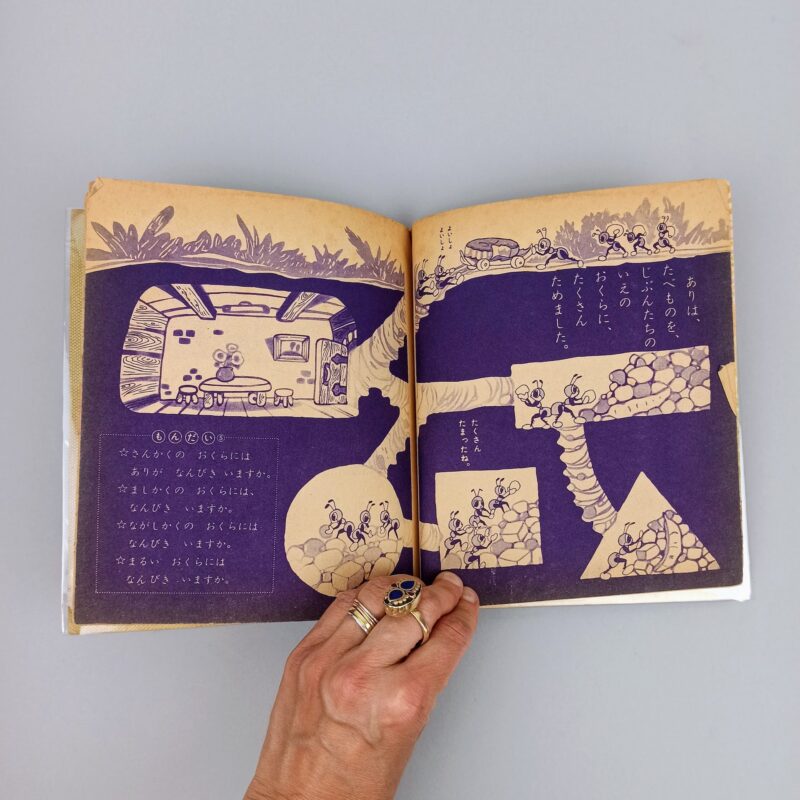 よいしょ
よいしょ
ありは、
たべものを、
じぶんたちの
いえの
おくらに、
たくさん
ためました。
たくさん
たまったね。
もんだい⑤
☆さんかくの おくらには
ありが なんびき いますか。
☆ましかくの おくらには、
なんびき いますか。
☆ながしかくの おくらには
なんびき いますか。
☆まるい おくらには
なんびき いますか。